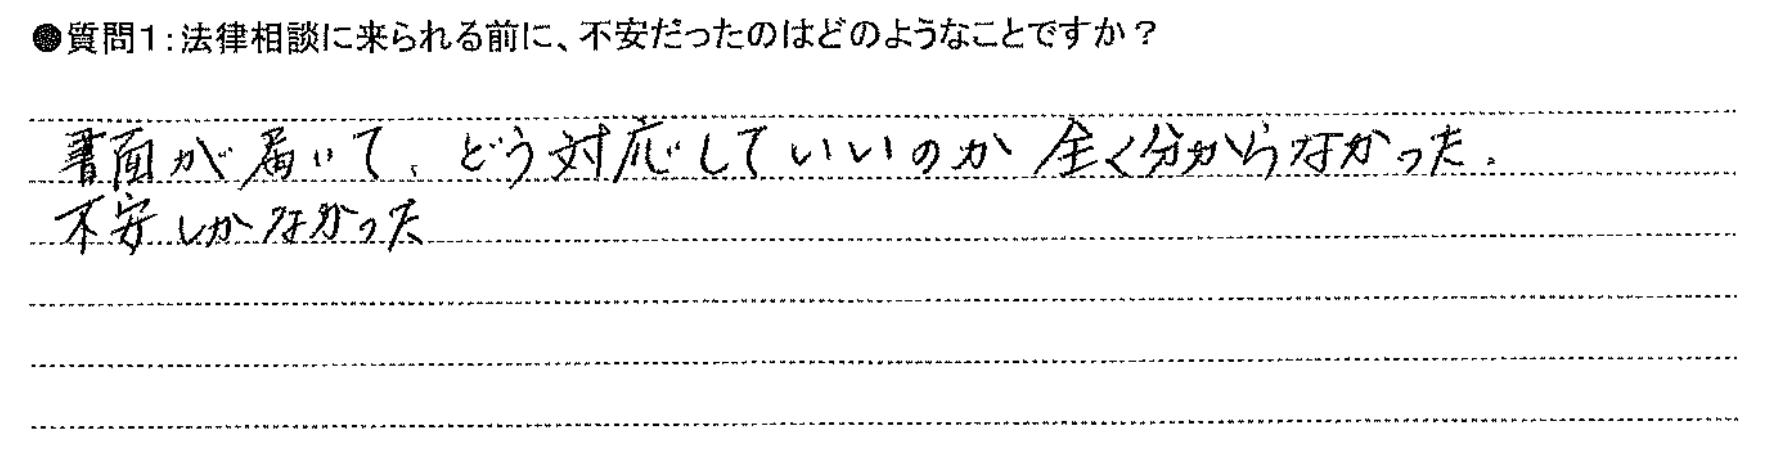 ●質問1:法律相談に来られる前に、不安だったのはどのようなことですか?
書面が届いて、どう対応していいのか全く分からなかった。
不安しかなかった